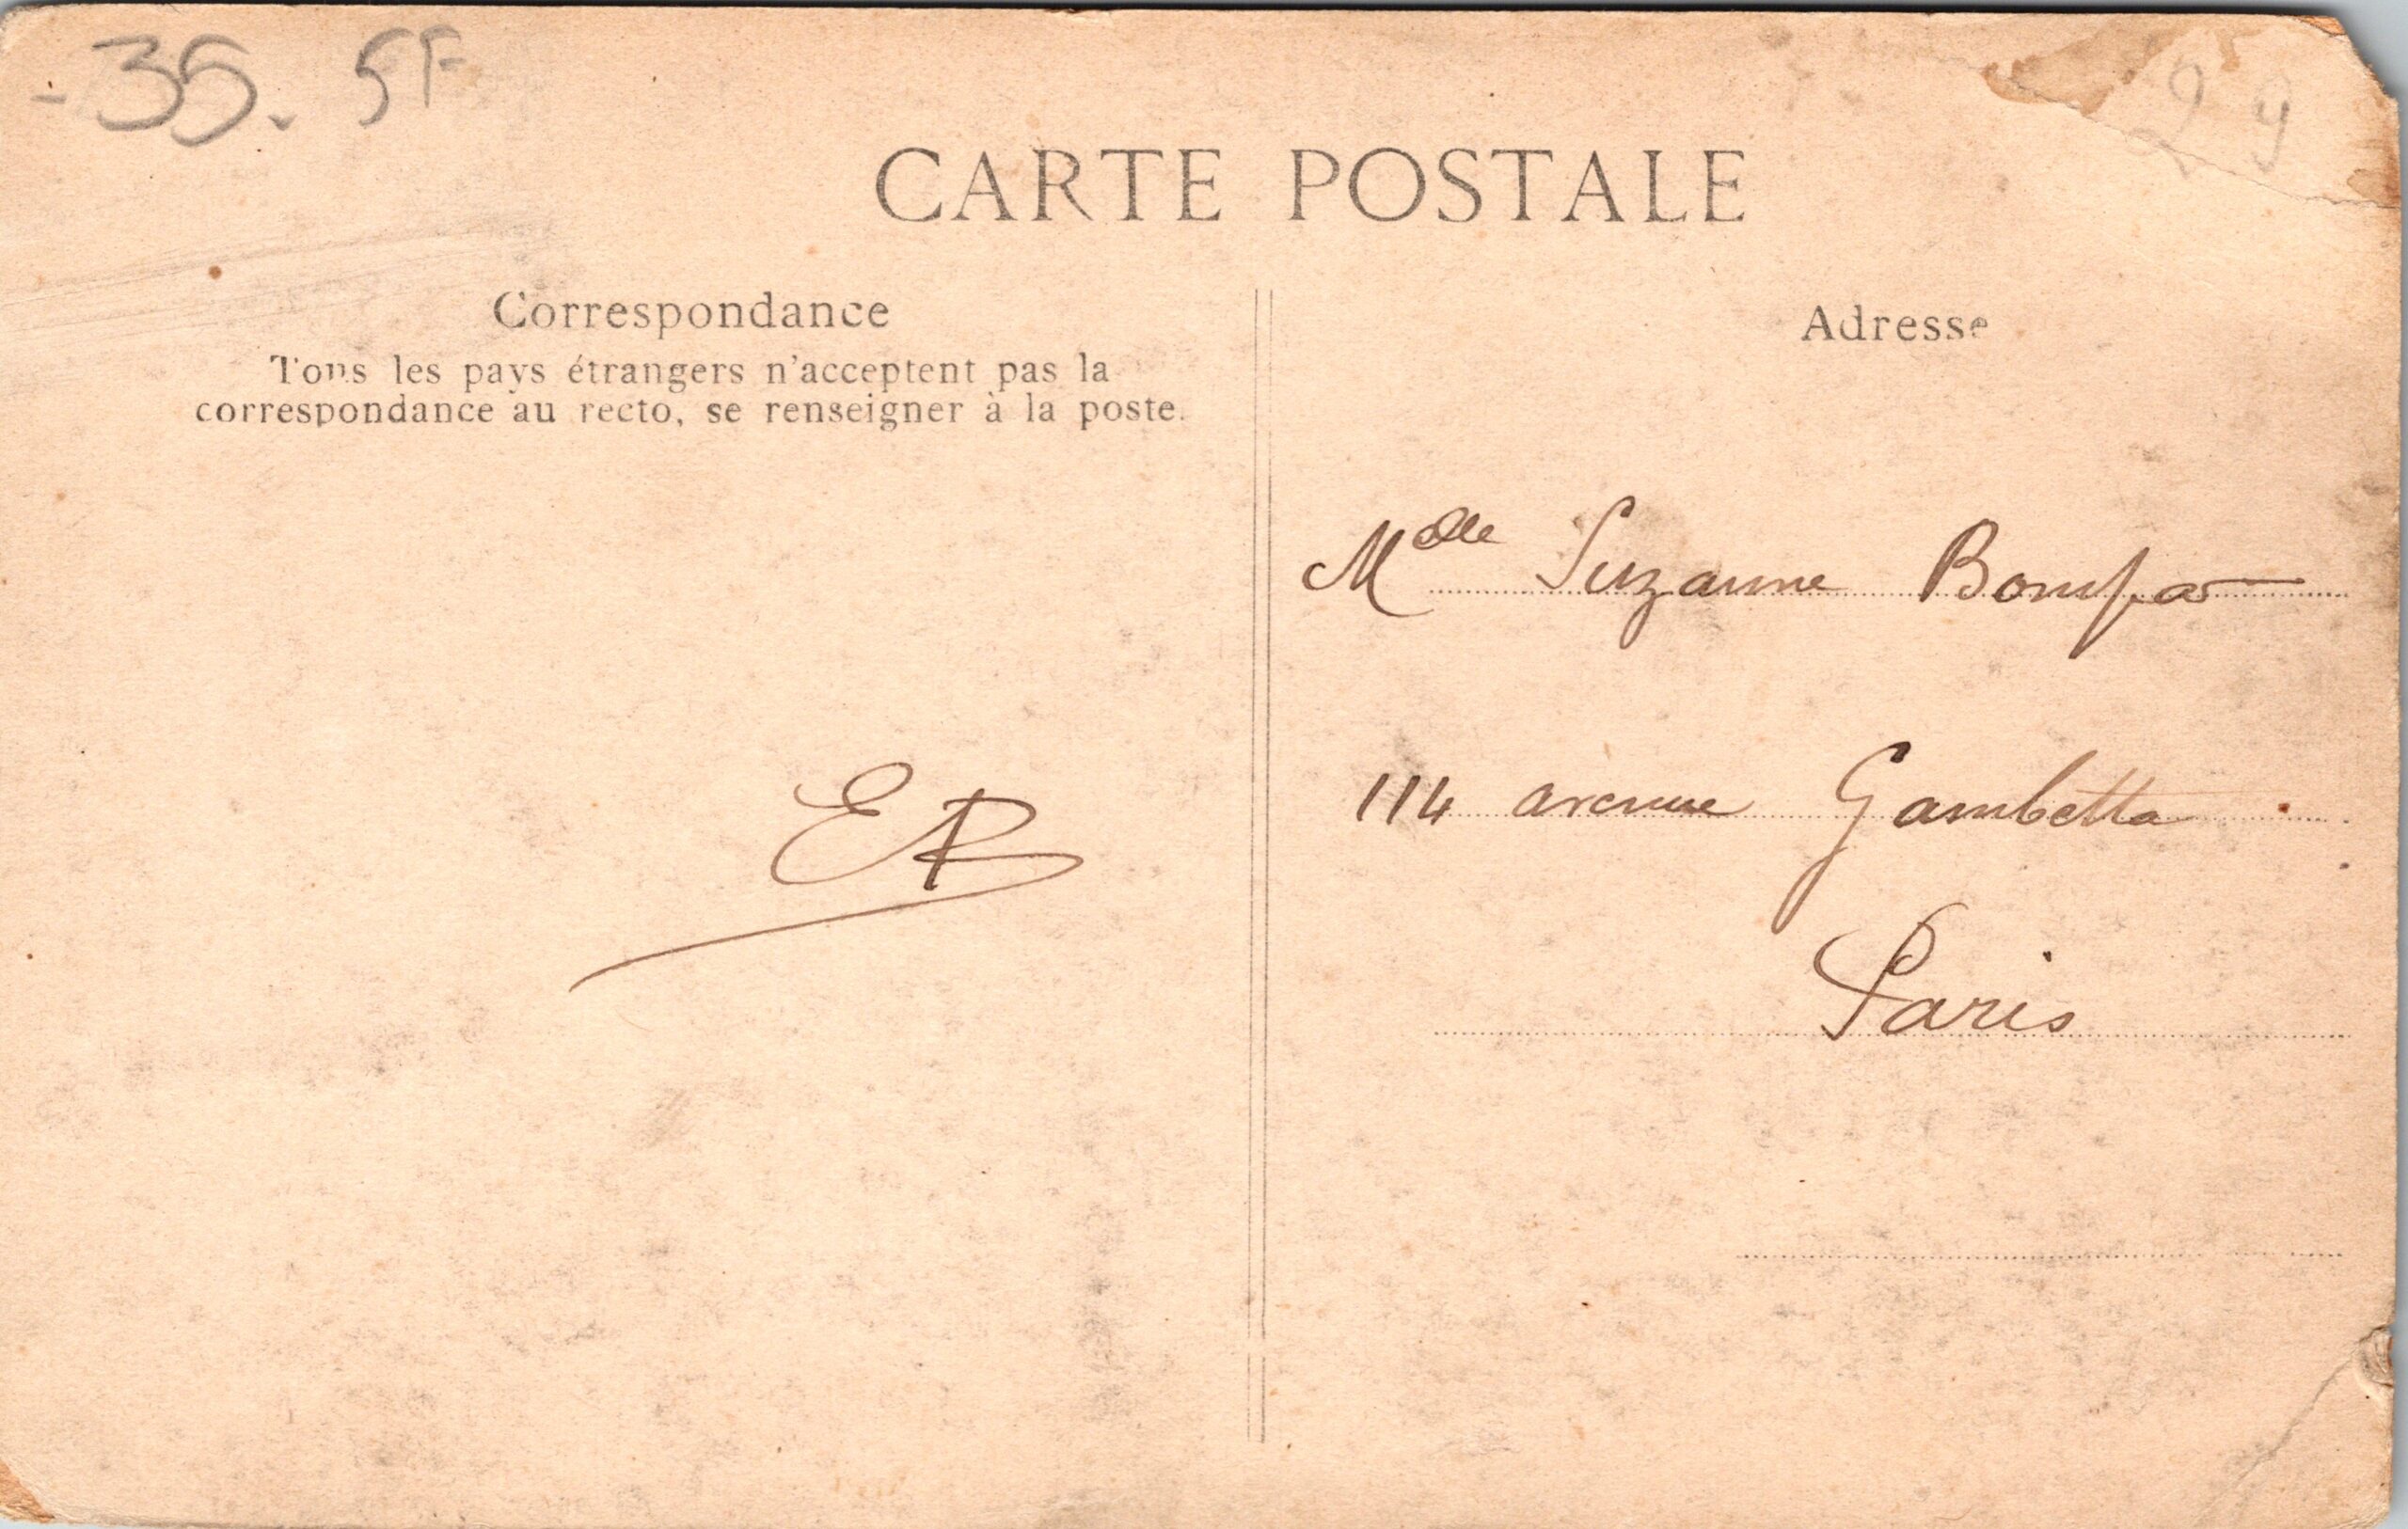 -35. 5F
29
CARTE POSTALE
Correspondance
Tous les pays étrangers n'acceptent pas la
correspondance au recto, se renseigner à la poste.
Adresse
Melle Suzanne
114 avenue Gambetta
Paris
ER